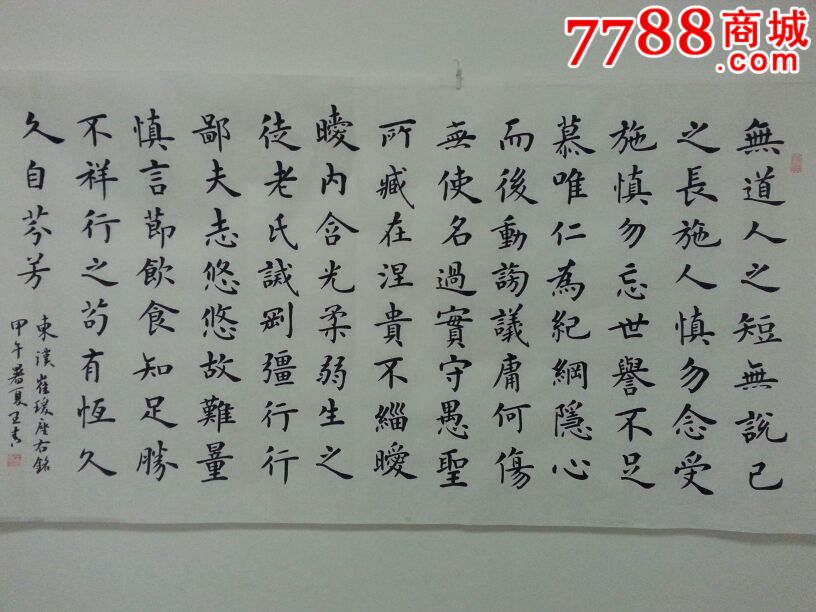 7788商城
.com
無道人之短無說己
之長施人慎勿念受
施慎勿忘世譽不足
慕唯仁為紀綱隱心
而後動謗議庸何傷
無使名過實守愚聖
所臧在涅貴不緇曖
曖內含光柔弱生之
徒老氏誡剛彊行行
鄙夫志悠悠故難量
慎言節飲食知足勝
不祥行之苟有恆久
久自芬芳
東漢崔瑗座右銘
甲午暑夏